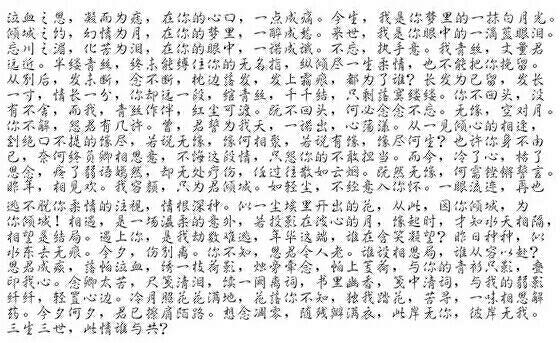 泣血之恩，凝而为痣，在你的心口，一点成痛。今生，我是你梦里的一抹白月光。
倾城之约，幻情为月，在你的梦里，一醉成愁。来世，我是你眼中的一滴蓝眼泪。
忘川之湄，化苦为泪，在你的眼中，一诺成戏。不忘，执手意。我青丝，丈量君
远近。半缕青丝，终未能缚住你的无名指，纵倾尽一生柔情，也不能把你挽留。
从别后，发未断，念不断，枕边落发，发上霜痕，都为了谁？长发为已留，发长
一寸，情长一分，你却远一段，绾青丝，千千结，只剩落寞缕缕。你不回头，没
有不舍，而我，青丝作伴，红尘可渡。既不回头，何必念念不忘。无缘，空对月。
你不解，怨君有几许。曾，君誓为我天，一诺出，心荡漾。从一见倾心的相逢，
到绝口不提的缘尽，若说无缘，缘何相聚，若说有缘，缘尽何生？也许你身不由
己，奈何终负卿相思意，不悔这段情，只怨你的不敢担当。而今，冷了心，格了
思念，疼了弱语嫣然，却无处疗伤，任过往散如云烟。既然无缘，何需铿锵誓言。
昨年，相见欢。我容颜，只为君倾城。如轻尘，不经意入你怀。一眼流连，再也
逃不脱你柔情的注视，情根深种。似一尘埃里开出的花，从此，因你倾城，为
你倾城！相遇，是一场温柔的意外，若投影在波心的月，缘起时，才知水天相隔，
相望是结局。遇上你，是我劫数难逃，年华这端，谁在含笑凝望？昨日种种，似
水东去无痕。今夕，伤别离。你不知，思君令人老。谁设相思局，谁从容以赴？
思君成疾，落帕泣血，绣一枝荷影，烛旁牵念，帕上芰荷，与你的青衫只影，叠
印我心。念卿太苦，尺笺清泪，续一阕离词，书里幽香，笺中清词，与我的弱影
纤纤，轻置心边。冷月照花花满地，花落你不知，独我踏花，苦寻，一味相思解
药。今夕何夕，君已擦肩陌路。想念凋零，随残瓣满衣，此岸无你，彼岸无我。
三生三世，此情谁与共？